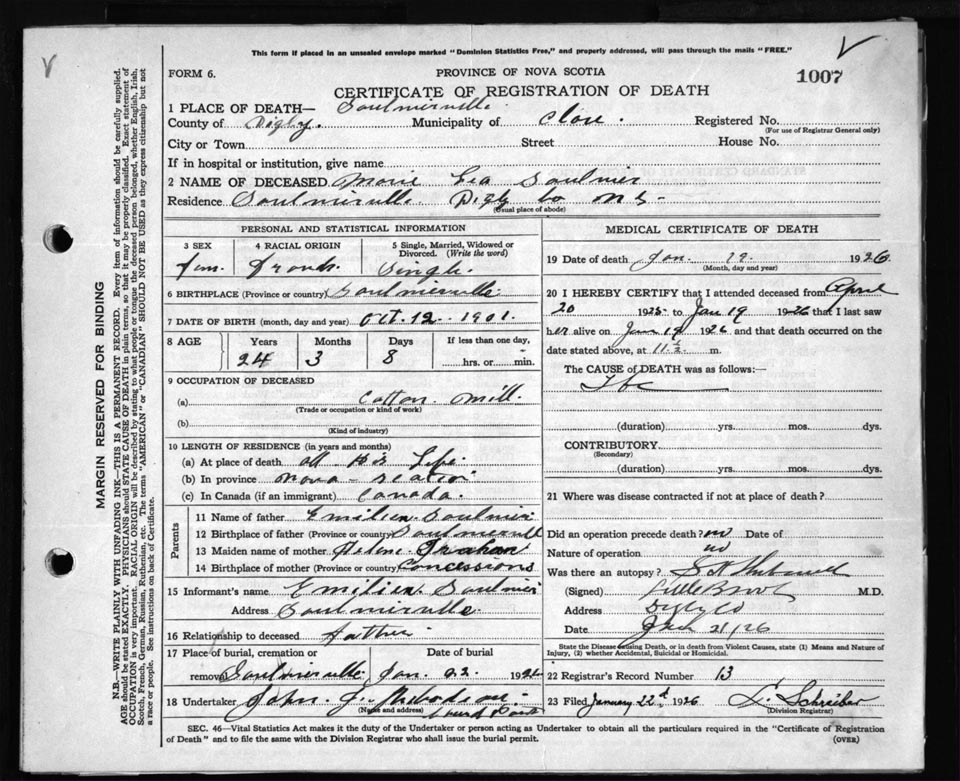 This form if placed in an unsealed envelope marked "Dominion Statistics Free," and properly addressed, will pass through the mails "FREE."
FORM 6.
PROVINCE OF NOVA SCOTIA
1007
CERTIFICATE OF REGISTRATION OF DEATH
1 PLACE OF DEATH— Saulnierville
County of Digby. Municipality of Clare. Registered No.
(For use of Registrar General only)
City or Town Street House No.
If in hospital or institution, give name
2 NAME OF DECEASED Marie Lea Saulnier
Residence Saulnierville Digby Co N S
(Usual place of abode)
PERSONAL AND STATISTICAL INFORMATION
3 SEX 4 RACIAL ORIGIN 5 Single, Married, Widowed or Divorced. (Write the word)
Fem. French. Single
6 BIRTHPLACE (Province or country) Saulnierville
7 DATE OF BIRTH (month, day and year) Oct. 12 1901.
8 AGE Years Months Days If less than one day,
24 3 8 hrs. or min.
9 OCCUPATION OF DECEASED
(a) Cotton Mill.
(Trade or occupation or kind of work)
(b)
(Kind of industry)
10 LENGTH OF RESIDENCE (in years and months)
(a) At place of death all his Life
(b) In province Nova-Scotia
(c) In Canada (if an immigrant) Canada.
Parents
11 Name of father Emilien Saulnier
12 Birthplace of father (Province or country) Saulnierville
13 Maiden name of mother Helene Trahan
14 Birthplace of mother (Province or country) Concessions
15 Informant's name Emilien Saulnier
Address Saulnierville.
16 Relationship to deceased Father
17 Place of burial, cremation or Date of burial
removal Saulnierville Jan. 22. 1926
18 Undertaker John J. Thibodeau
(Name and address) Church Point
MEDICAL CERTIFICATE OF DEATH
19 Date of death Jan. 19. 1926
(Month, day and year)
20 I HEREBY CERTIFY that I attended deceased from April
20 1925 to Jan 19 1926 that I last saw
her alive on Jan 19 1926 and that death occurred on the
date stated above, at 11½ m.
The CAUSE OF DEATH was as follows:—
Tbc
(duration) yrs. mos. dys.
CONTRIBUTORY
(Secondary)
(duration) yrs. mos. dys.
21 Where was disease contracted if not at place of death?
Did an operation precede death? no Date of
Nature of operation no
Was there an autopsy?
(Signed) M.D.
Address Little Brook
Digby Co
Date Jan 21/26
State the Disease causing Death, or in death from Violent Causes, state (1) Means and Nature of Injury, (2) whether Accidental, Suicidal or Homicidal.
22 Registrar's Record Number 13
23 Filed January 22d 1926 Schreiber
(Division Registrar)
SEC. 46—Vital Statistics Act makes it the duty of the Undertaker or person acting as Undertaker to obtain all the particulars required in the "Certificate of Registration
of Death" and to file the same with the Division Registrar who shall issue the burial permit.
(OVER)
MARGIN RESERVED FOR BINDING
N.B.—WRITE PLAINLY WITH UNFADING INK—THIS IS A PERMANENT RECORD. Every item of information should be carefully supplied.
AGE should be stated EXACTLY. PHYSICIANS should STATE CAUSE OF DEATH in plain terms, so that it may be properly classified. Exact statement of
OCCUPATION is very important. RACIAL ORIGIN will be described by stating to what people or tongue the deceased person belonged, whether English, Irish,
Scotch, French, German, Russian, Ruthenian, etc. The terms "AMERICAN" or "CANADIAN" SHOULD NOT BE USED as they express citizenship but not
a race or people. See instructions on back of Certificate.